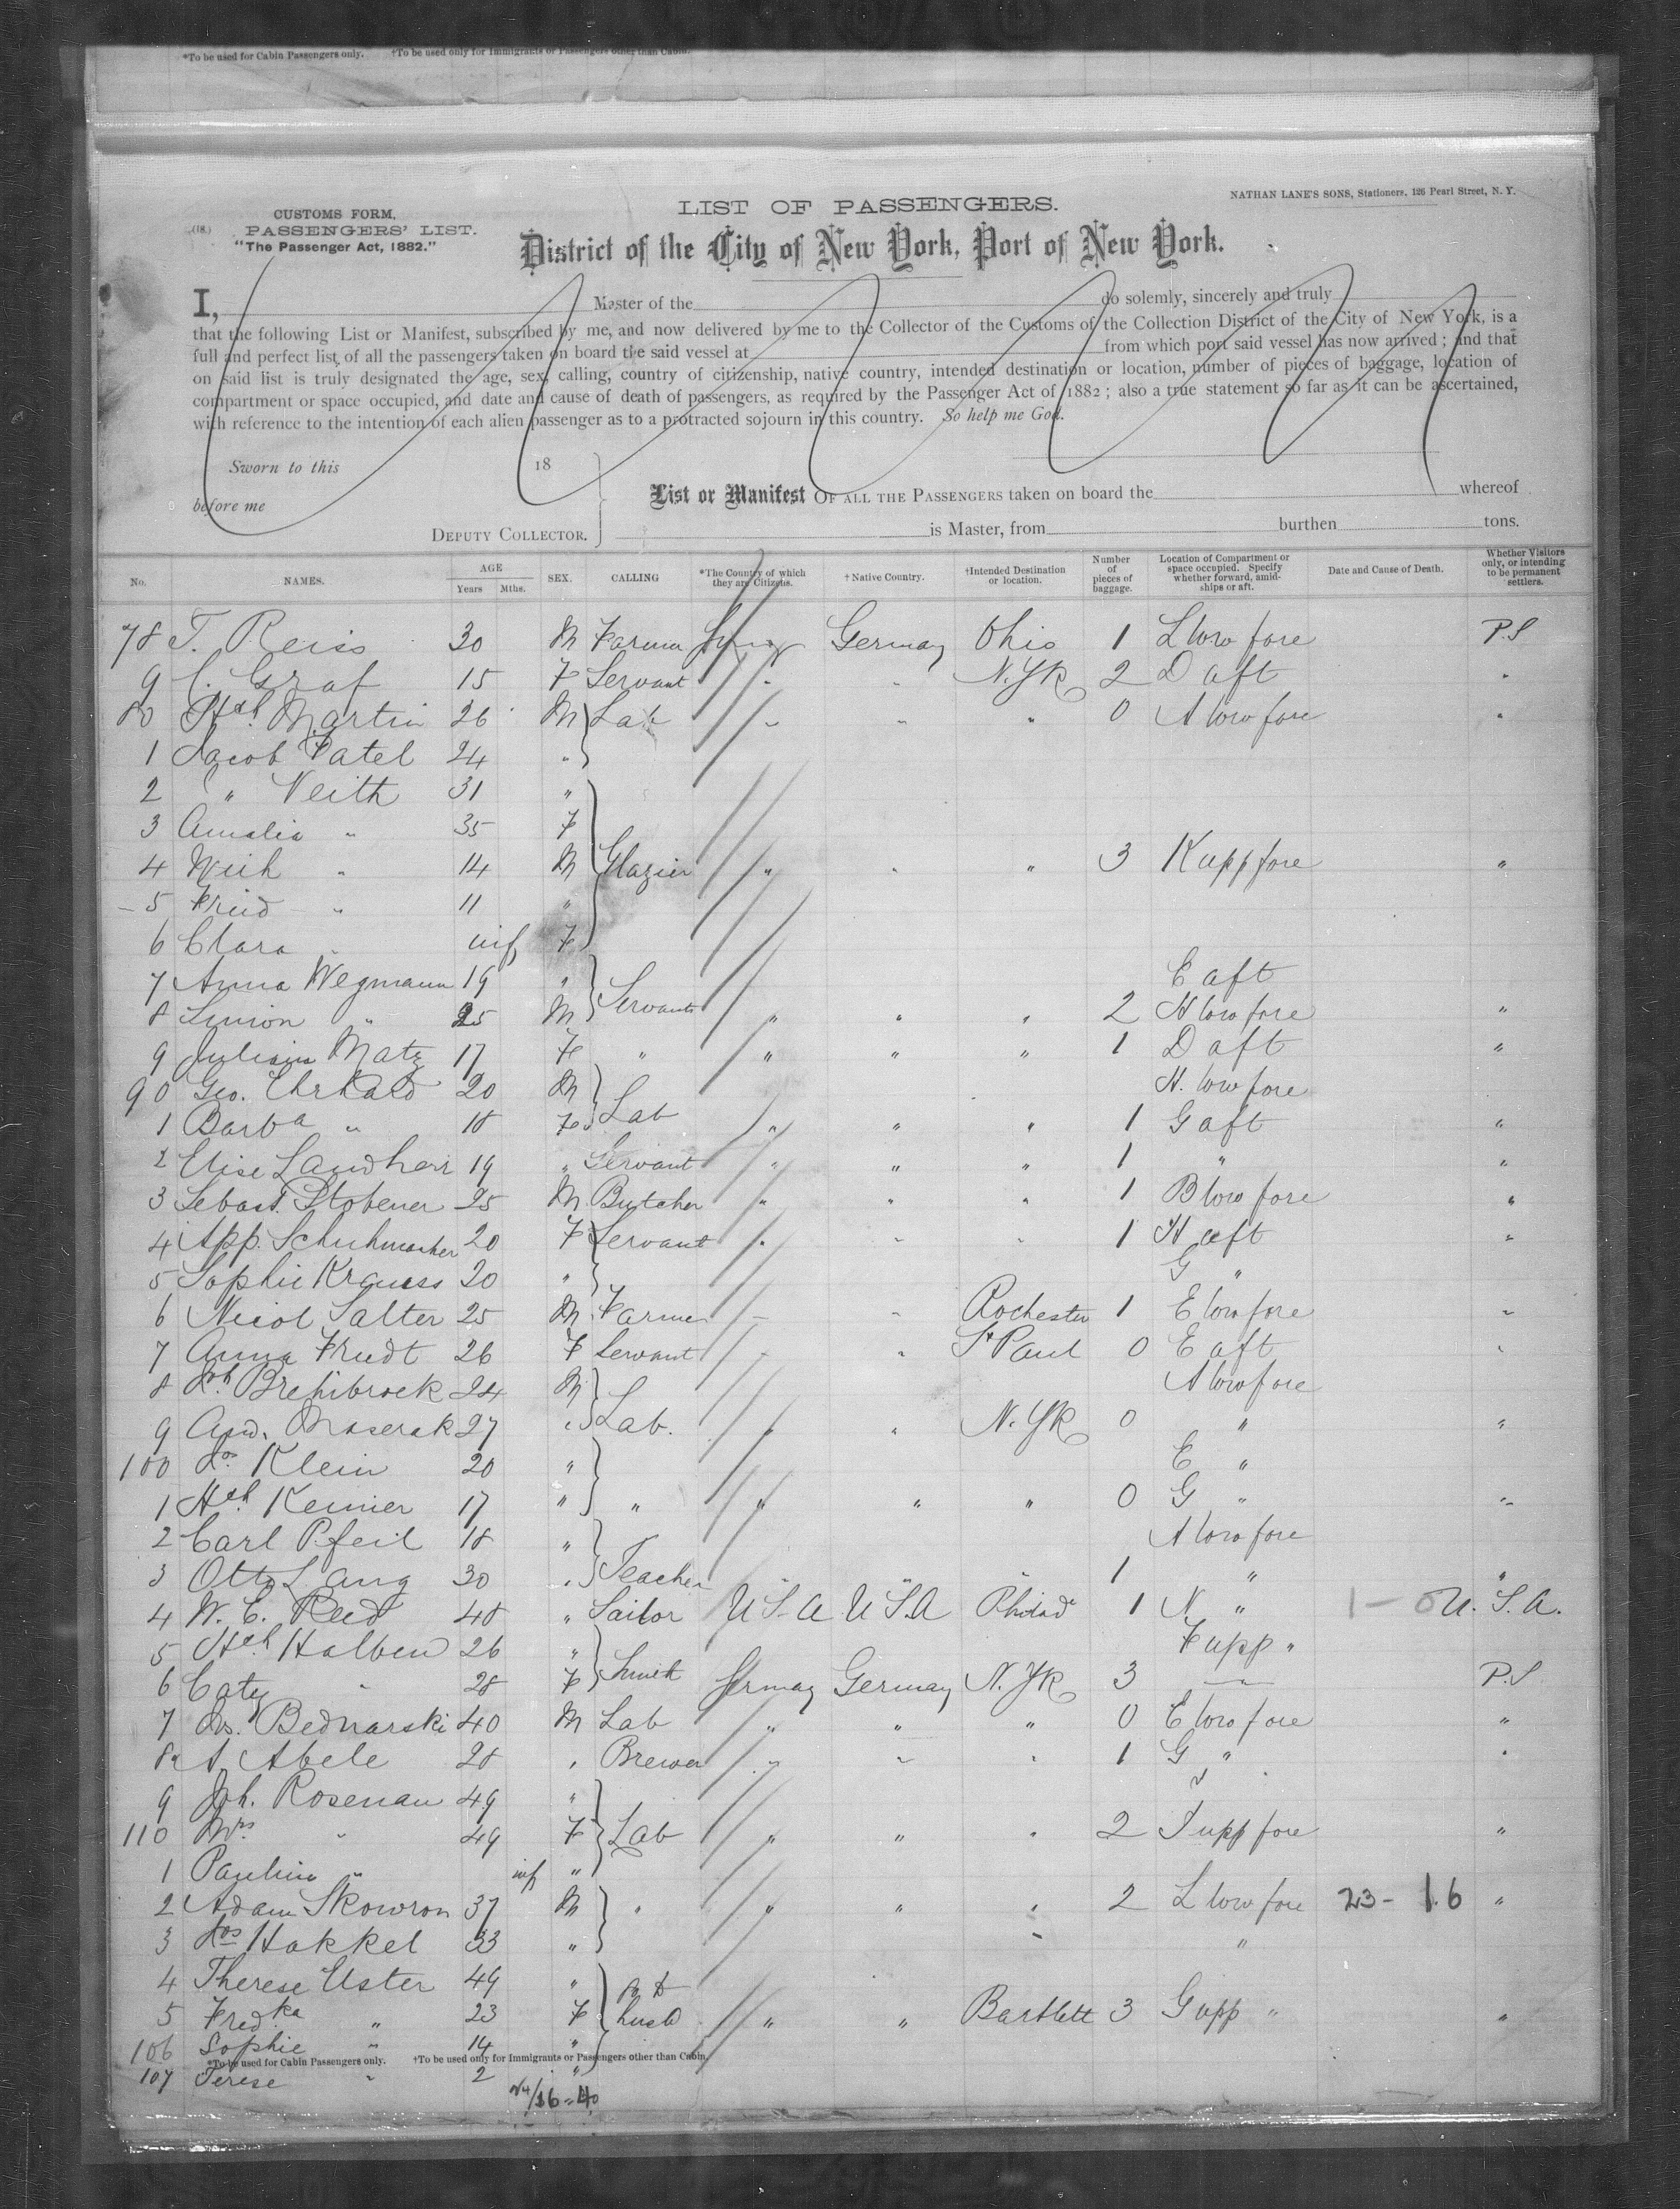 *To be used for Cabin Passengers only. †To be used only for Immigrants or Passengers other than Cabin.
NATHAN LANE'S SONS, Stationers, 126 Pearl Street, N. Y.
(18.) CUSTOMS FORM,
PASSENGERS' LIST.
"The Passenger Act, 1882."
LIST OF PASSENGERS.
District of the City of New York, Port of New York.
I, Master of the do solemly, sincerely and truly
that the following List or Manifest, subscribed by me, and now delivered by me to the Collector of the Customs of the Collection District of the City of New York, is a
full and perfect list of all the passengers taken on board the said vessel at from which port said vessel has now arrived ; and that
on said list is truly designated the age, sex, calling, country of citizenship, native country, intended destination or location, number of pieces of baggage, location of
compartment or space occupied, and date and cause of death of passengers, as required by the Passenger Act of 1882 ; also a true statement so far as it can be ascertained,
with reference to the intention of each alien passenger as to a protracted sojourn in this country. So help me God.
Sworn to this 18
before me
DEPUTY COLLECTOR.
List or Manifest OF ALL THE PASSENGERS taken on board the whereof
is Master, from burthen tons.
No. NAMES. AGE Years Mths. SEX. CALLING *The Country of which they are Citizens. †Native Country. †Intended Destination or location. Number of pieces of baggage. Location of Compartment or space occupied. Specify whether forward, amidships or aft. Date and Cause of Death. Whether Visitors only, or intending to be permanent settlers.
78 T. Reiss 30 M Farmer Germany Germany Ohio 1 L low fore P.S
9 C. Graf 15 F Servant " " N.Yk 2 D aft "
80 Hch Martin 26 M Lab " " " 0 A low fore "
1 Jacob Patel 24 "
2 " Veith 31 "
3 Amalia " 35 F
4 " 14 M Glazier " " " 3 K upp fore "
5 Fried " 11 "
6 Clara " inf F
7 Anna Wegmann 19 " Servant E aft
8 Simon " 25 M " " " 2 H low fore "
9 Matz 17 F " " " " 1 D aft "
90 Geo. Ehrhard 20 M H. low fore
1 Barba " 18 F Lab " " " 1 G aft "
2 Elise Landherr 19 " Servant " " " 1 " "
3 Sebast. Stobener 25 M Butcher " " " 1 B low fore "
4 App. Schuhmacher 20 F Servant " " " 1 H aft "
5 Sophie Krauss 20 " G "
6 Nicol Salter 25 M Farmer " " Rochester 1 E low fore "
7 Anna Friedt 26 F Servant " " St Paul 0 E aft "
8 Brehibrock 24 M A low fore
9 And. Maserak 27 " Lab. " " N.Yk 0 " "
100 Klein 20 " E "
1 Hch Kemier 17 " " " " " 0 G " "
2 Carl Pfeil 18 " A low fore
3 Otto Lang 30 " Teacher " " " 1 " "
4 W. C. Reed 48 " Sailor U S A U S.A Philad 1 N " 1 - 0 U. S. A.
5 Hch Halben 26 " F upp "
6 Caty " 28 F Smith Germany Germany N.Yk 3 " P.S
7 Bednarski 40 M Lab " " " 0 E low fore "
8 A. Abele 28 " Brewer " " " 1 G " "
9 Joh. Rosenau 49 "
110 Mrs " 49 F Lab " " " 2 I upp fore "
1 Pauline " inf "
2 Adam Skowron 37 M " " " " 2 L low fore 23 - 16 "
3 Jos Hakkel 33 " " "
4 Therese Uster 49 "
5 Fredka " 23 F husb " " Bartlett 3 G upp " "
106 Sophie " 14 "
*To be used for Cabin Passengers only. †To be used only for Immigrants or Passengers other than Cabin.
107 Terese " 2 "
24/16 = 40